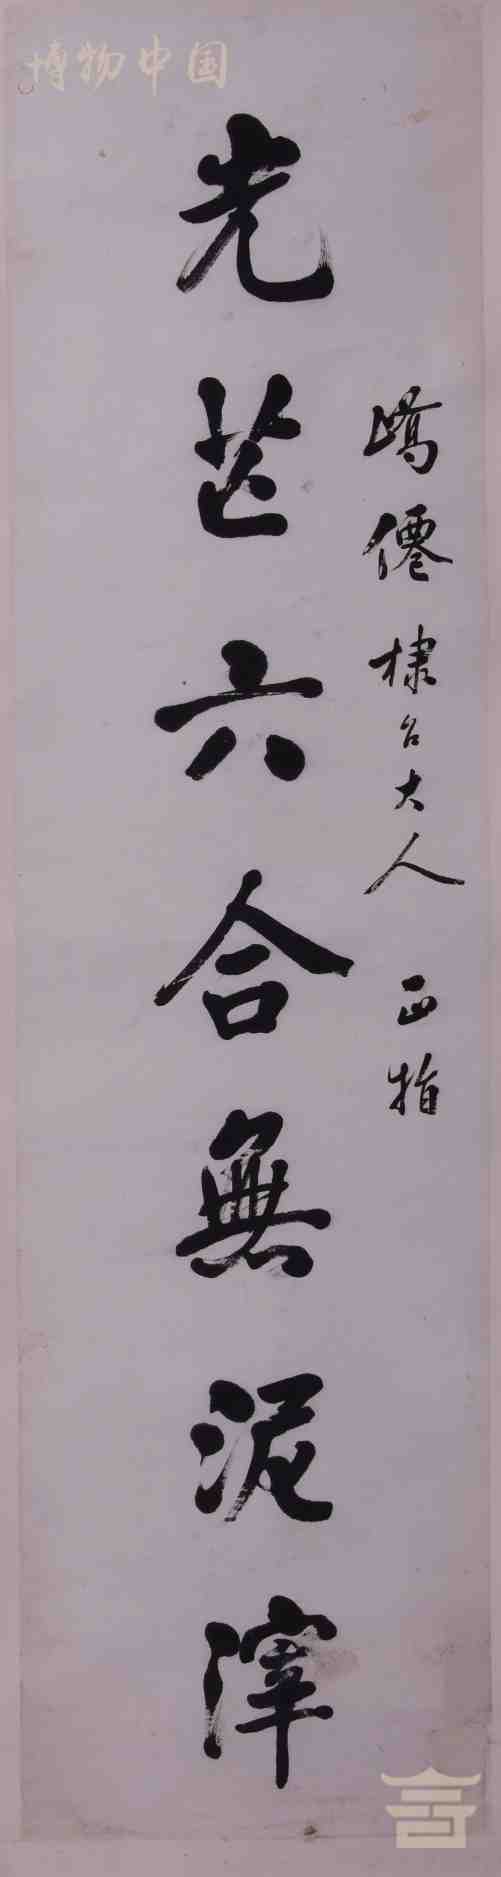 博物中国
嶠僊棣台大人 正指
光芒六合無泥滓